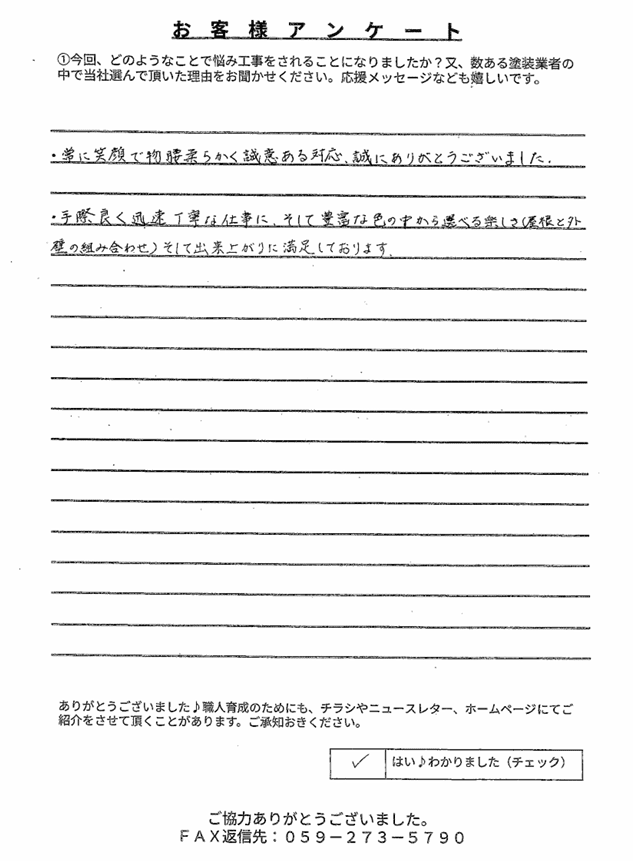 お客様アンケート
①今回、どのようなことで悩み工事をされることになりましたか？又、数ある塗装業者の
中で当社選んで頂いた理由をお聞かせください。応援メッセージなども嬉しいです。
・常に笑顔で物腰柔らかく誠意ある対応、誠にありがとうございました.
・手際良く迅速丁寧な仕事に、そして豊富な色の中から選べる楽しさ(屋根と外
壁の組み合わせ)そして出来上がりに満足しております.
ありがとうございました♪職人育成のためにも、チラシやニュースレター、ホームページにてご
紹介をさせて頂くことがあります。ご承知おきください。
✓ はい♪わかりました（チェック）
ご協力ありがとうございました。
ＦＡＸ返信先：０５９－２７３－５７９０